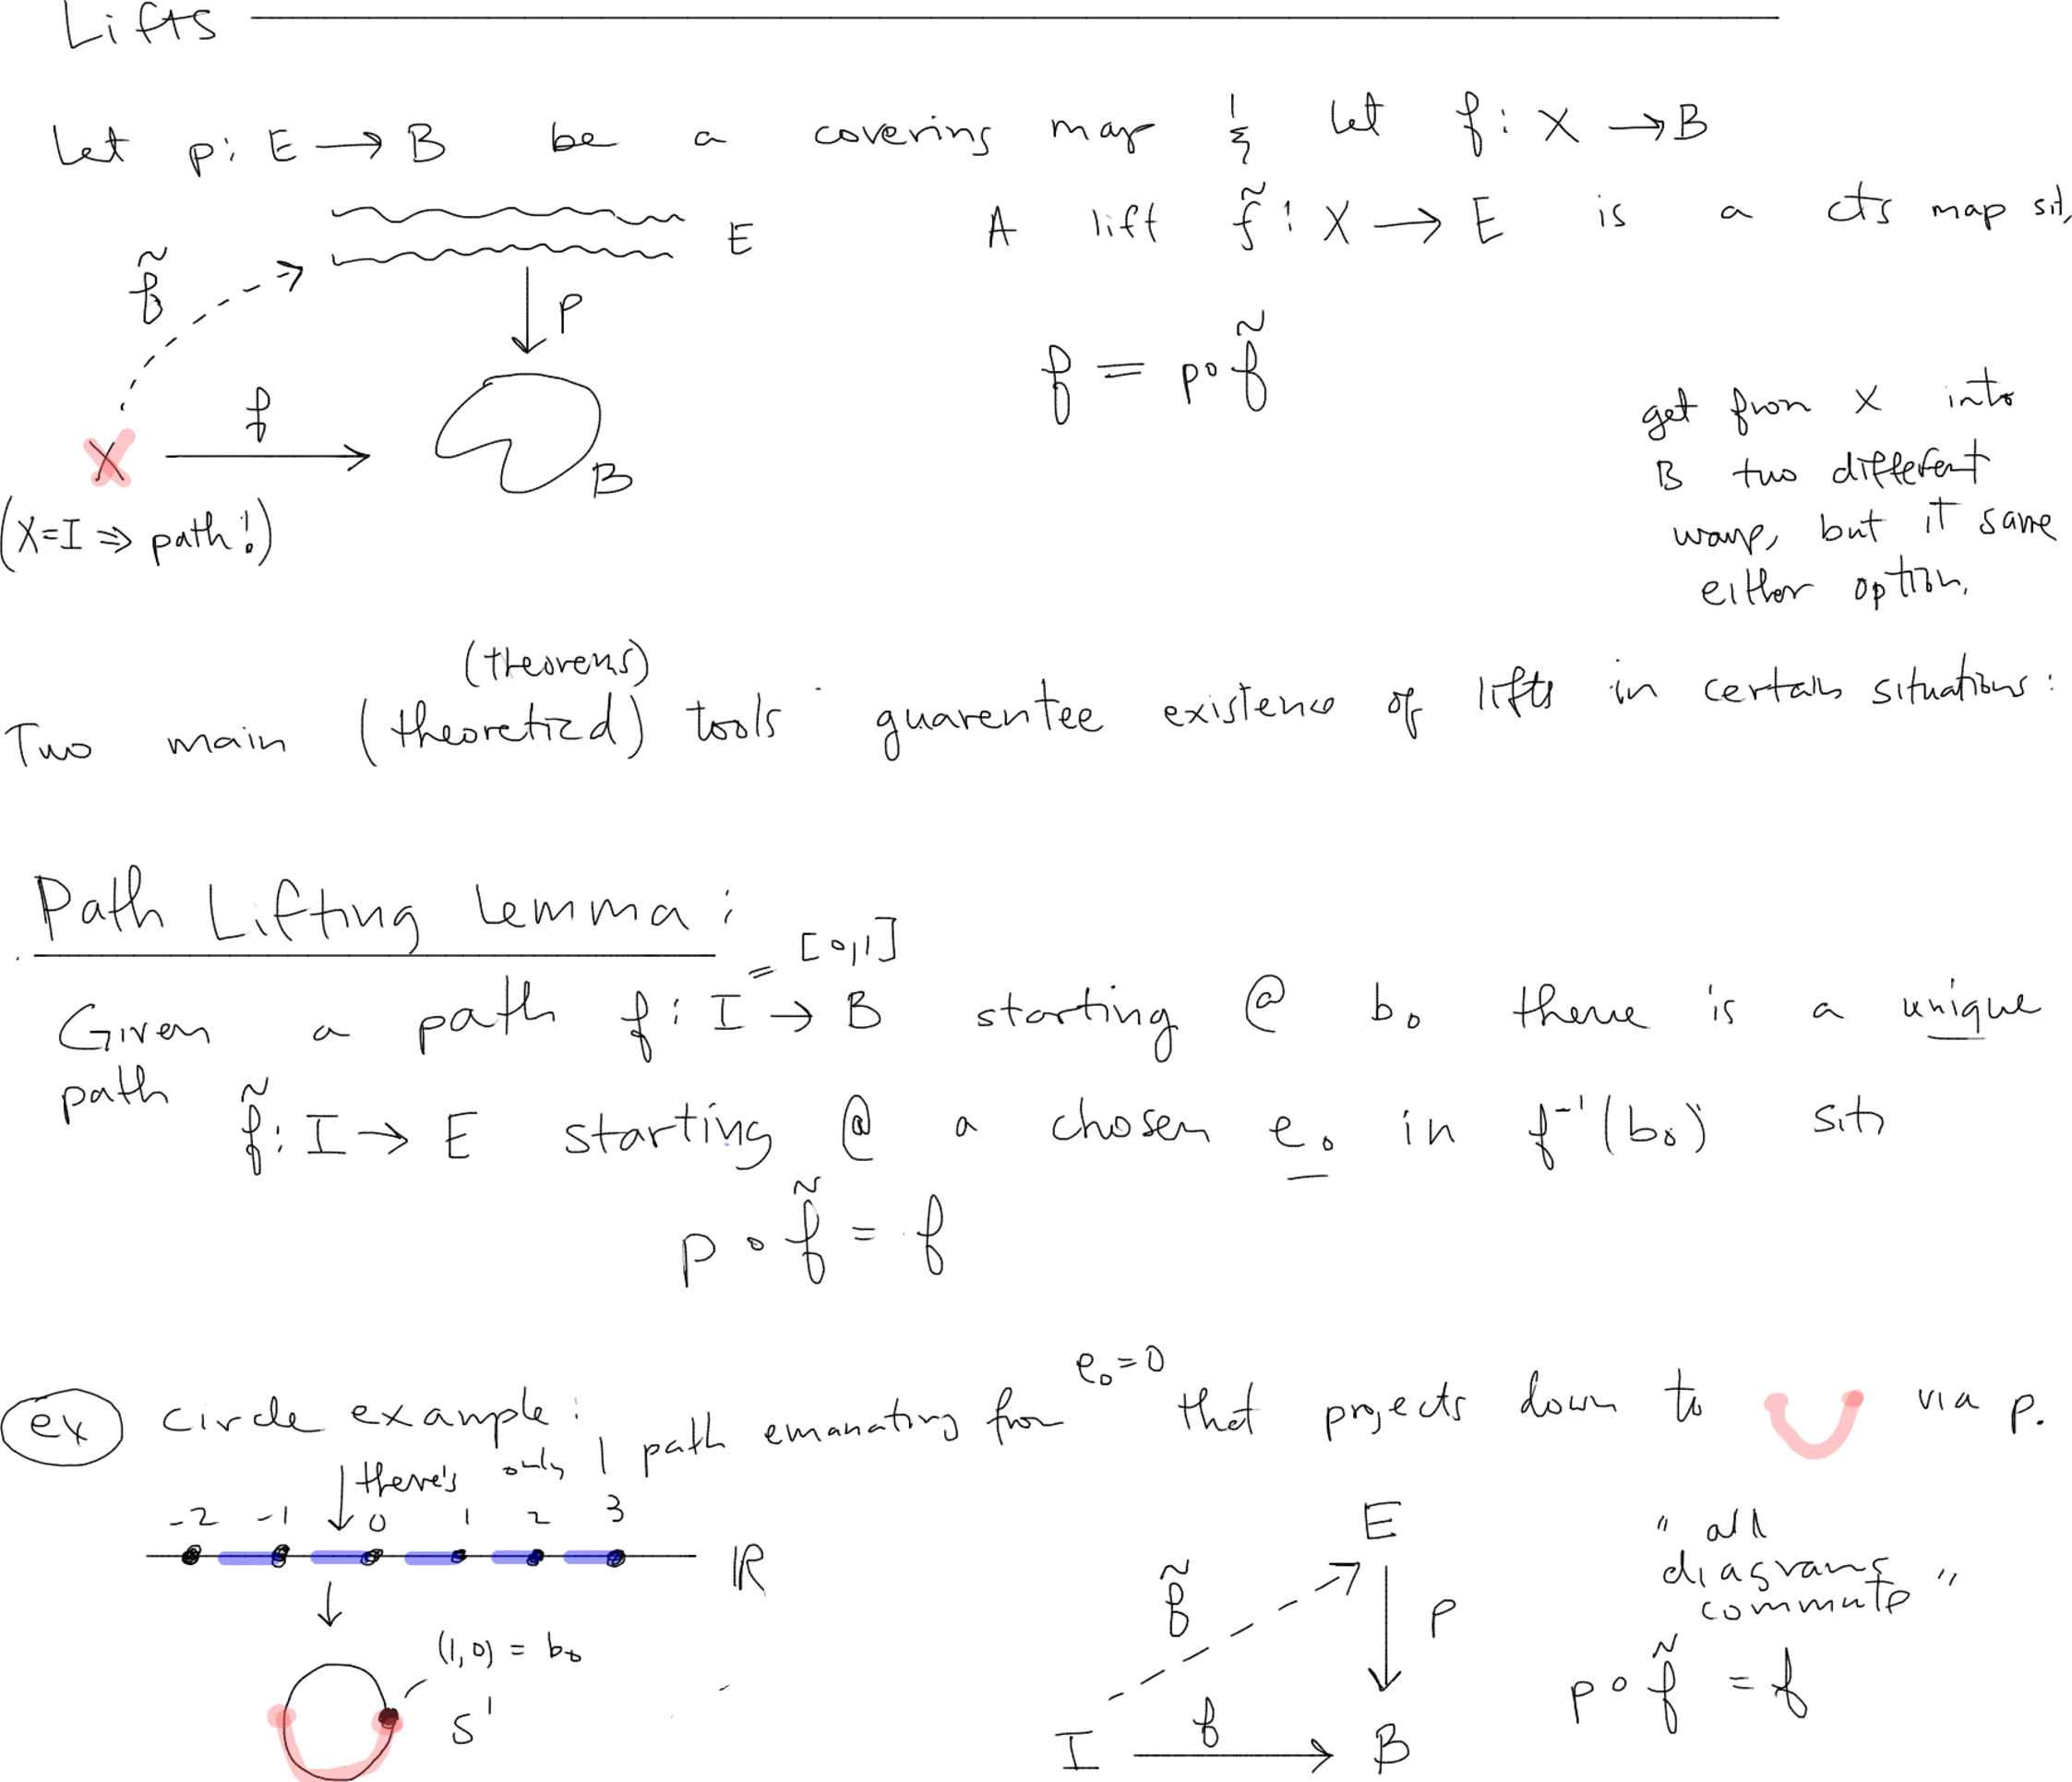 Lifts
Let p: E → B be a covering map & let f: X → B
A lift f̃: X → E is a cts map s.t.
E
f̃
p
f = p∘f̃
f
X
B
(X=I ⇒ path!)
get from X into
B two different
ways, but it same
either option.
(theorems)
Two main (theoretical) tools guarentee existence of lifts in certain situations:
Path Lifting Lemma:
= [0,1]
Given a path f: I → B starting @ b₀ there is a unique
path f̃: I → E starting @ a chosen e₀ in f⁻¹(b₀) s.t.
p∘f̃ = f
ex circle example: there's only 1 path emanating from e₀=0 that projects down to via p.
-2 -1 0 1 2 3
ℝ
(1,0) = b₀
S¹
E
f̃
p
I f B
"all
diagrams
commute"
p∘f̃ = f